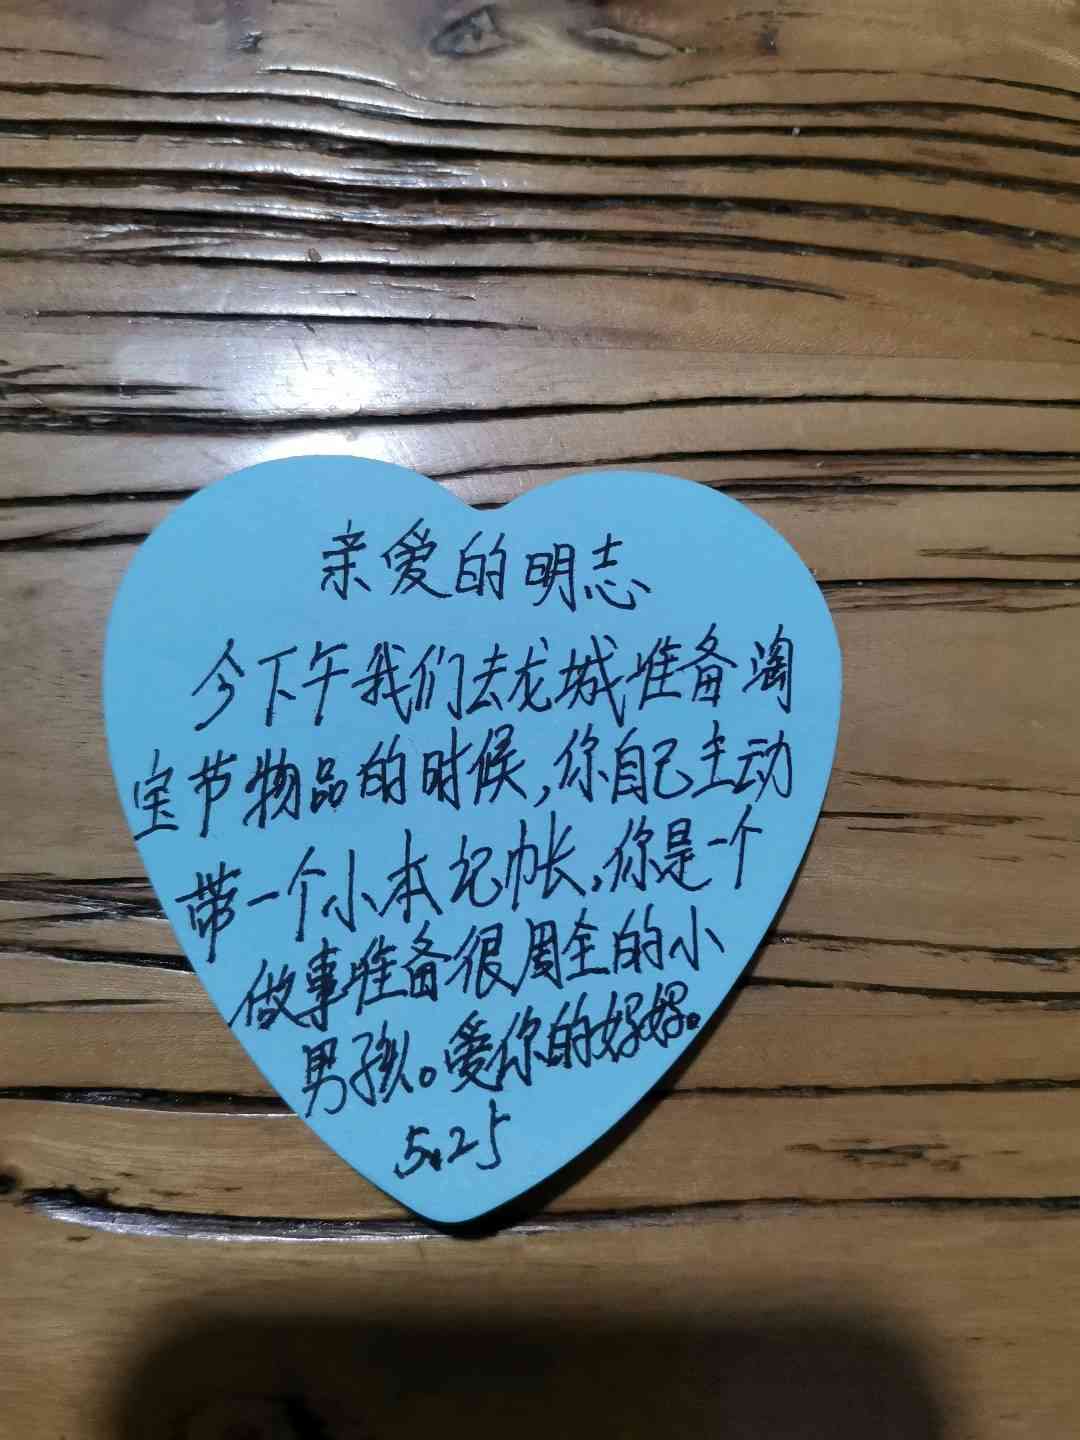 亲爱的明志
今下午我们去龙城准备淘
宝节物品的时候,你自己主动
带一个小本记帐,你是一个
做事准备很周全的小
男孩。爱你的妈妈。
5.25